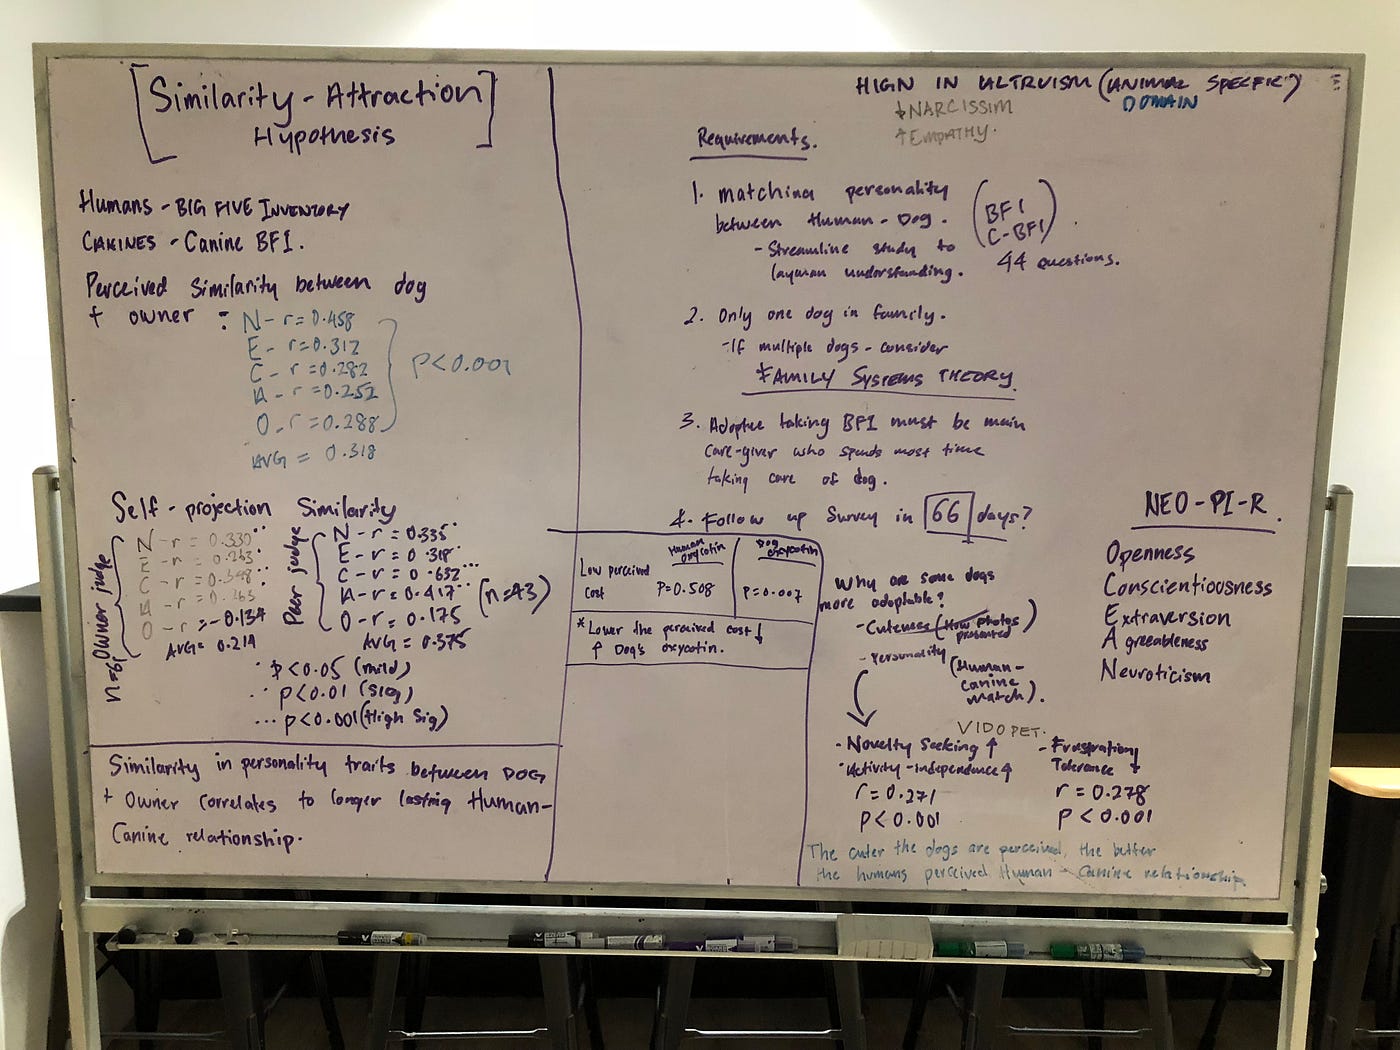 [Similarity - Attraction
Hypothesis]
Humans - BIG FIVE INVENTORY
CANINES - Canine BFI.
Perceived Similarity between dog
+ owner :
N - r = 0.458
E - r = 0.312
C - r = 0.282
A - r = 0.252
O - r = 0.288
AVG = 0.318
P < 0.001
Self - projection
n=61 Owner judge
N - r = 0.330 ..
E - r = 0.263 .
C - r = 0.348 ..
A - r = 0.263 .
O - r = -0.134
AVG = 0.214
Similarity
Peer judge
N - r = 0.335 .
E - r = 0.318 .
C - r = 0.632 ...
A - r = 0.417 ..
O - r = 0.175
AVG = 0.375
(n=43)
. P < 0.05 (mild)
.. P < 0.01 (sig)
... P < 0.001 (High Sig)
Similarity in personality traits between DOG
+ Owner correlates to longer lasting Human-
Canine relationship.
HIGH IN ALTRUISM (ANIMAL SPECIFIC)
DOMAIN
↓ NARCISSIM
↑ EMPATHY.
Requirements.
1. Matching personality
between Human - Dog.
(BFI
C-BFI) .
- Streamline study to
layman understanding.
44 questions.
2. Only one dog in family.
- If multiple dogs - consider
*FAMILY SYSTEMS THEORY
3. Adoptee taking BFI must be main
care-giver who spends most time
taking care of dog.
4. Follow up Survey in 66 days?
Human oxycotin
Dog oxycotin
Low perceived
cost
P=0.508
P=0.007
* Lower the perceived cost ↓
↑ Dog's oxycotin.
Why are some dogs
more adoptable?
- Cuteness (How photos
presented)
- Personality (Human-
Canine
match).
VIDOPET.
- Novelty Seeking ↑
- Activity - Independence ↑
r = 0.271
P < 0.001
- Frustration
Tolerance ↓
r = 0.278
P < 0.001
The cuter the dogs are perceived, the better
the humans perceived Human - Canine relationship.
NEO-PI-R.
Openness
Conscientiousness
Extraversion
Agreeableness
Neuroticism